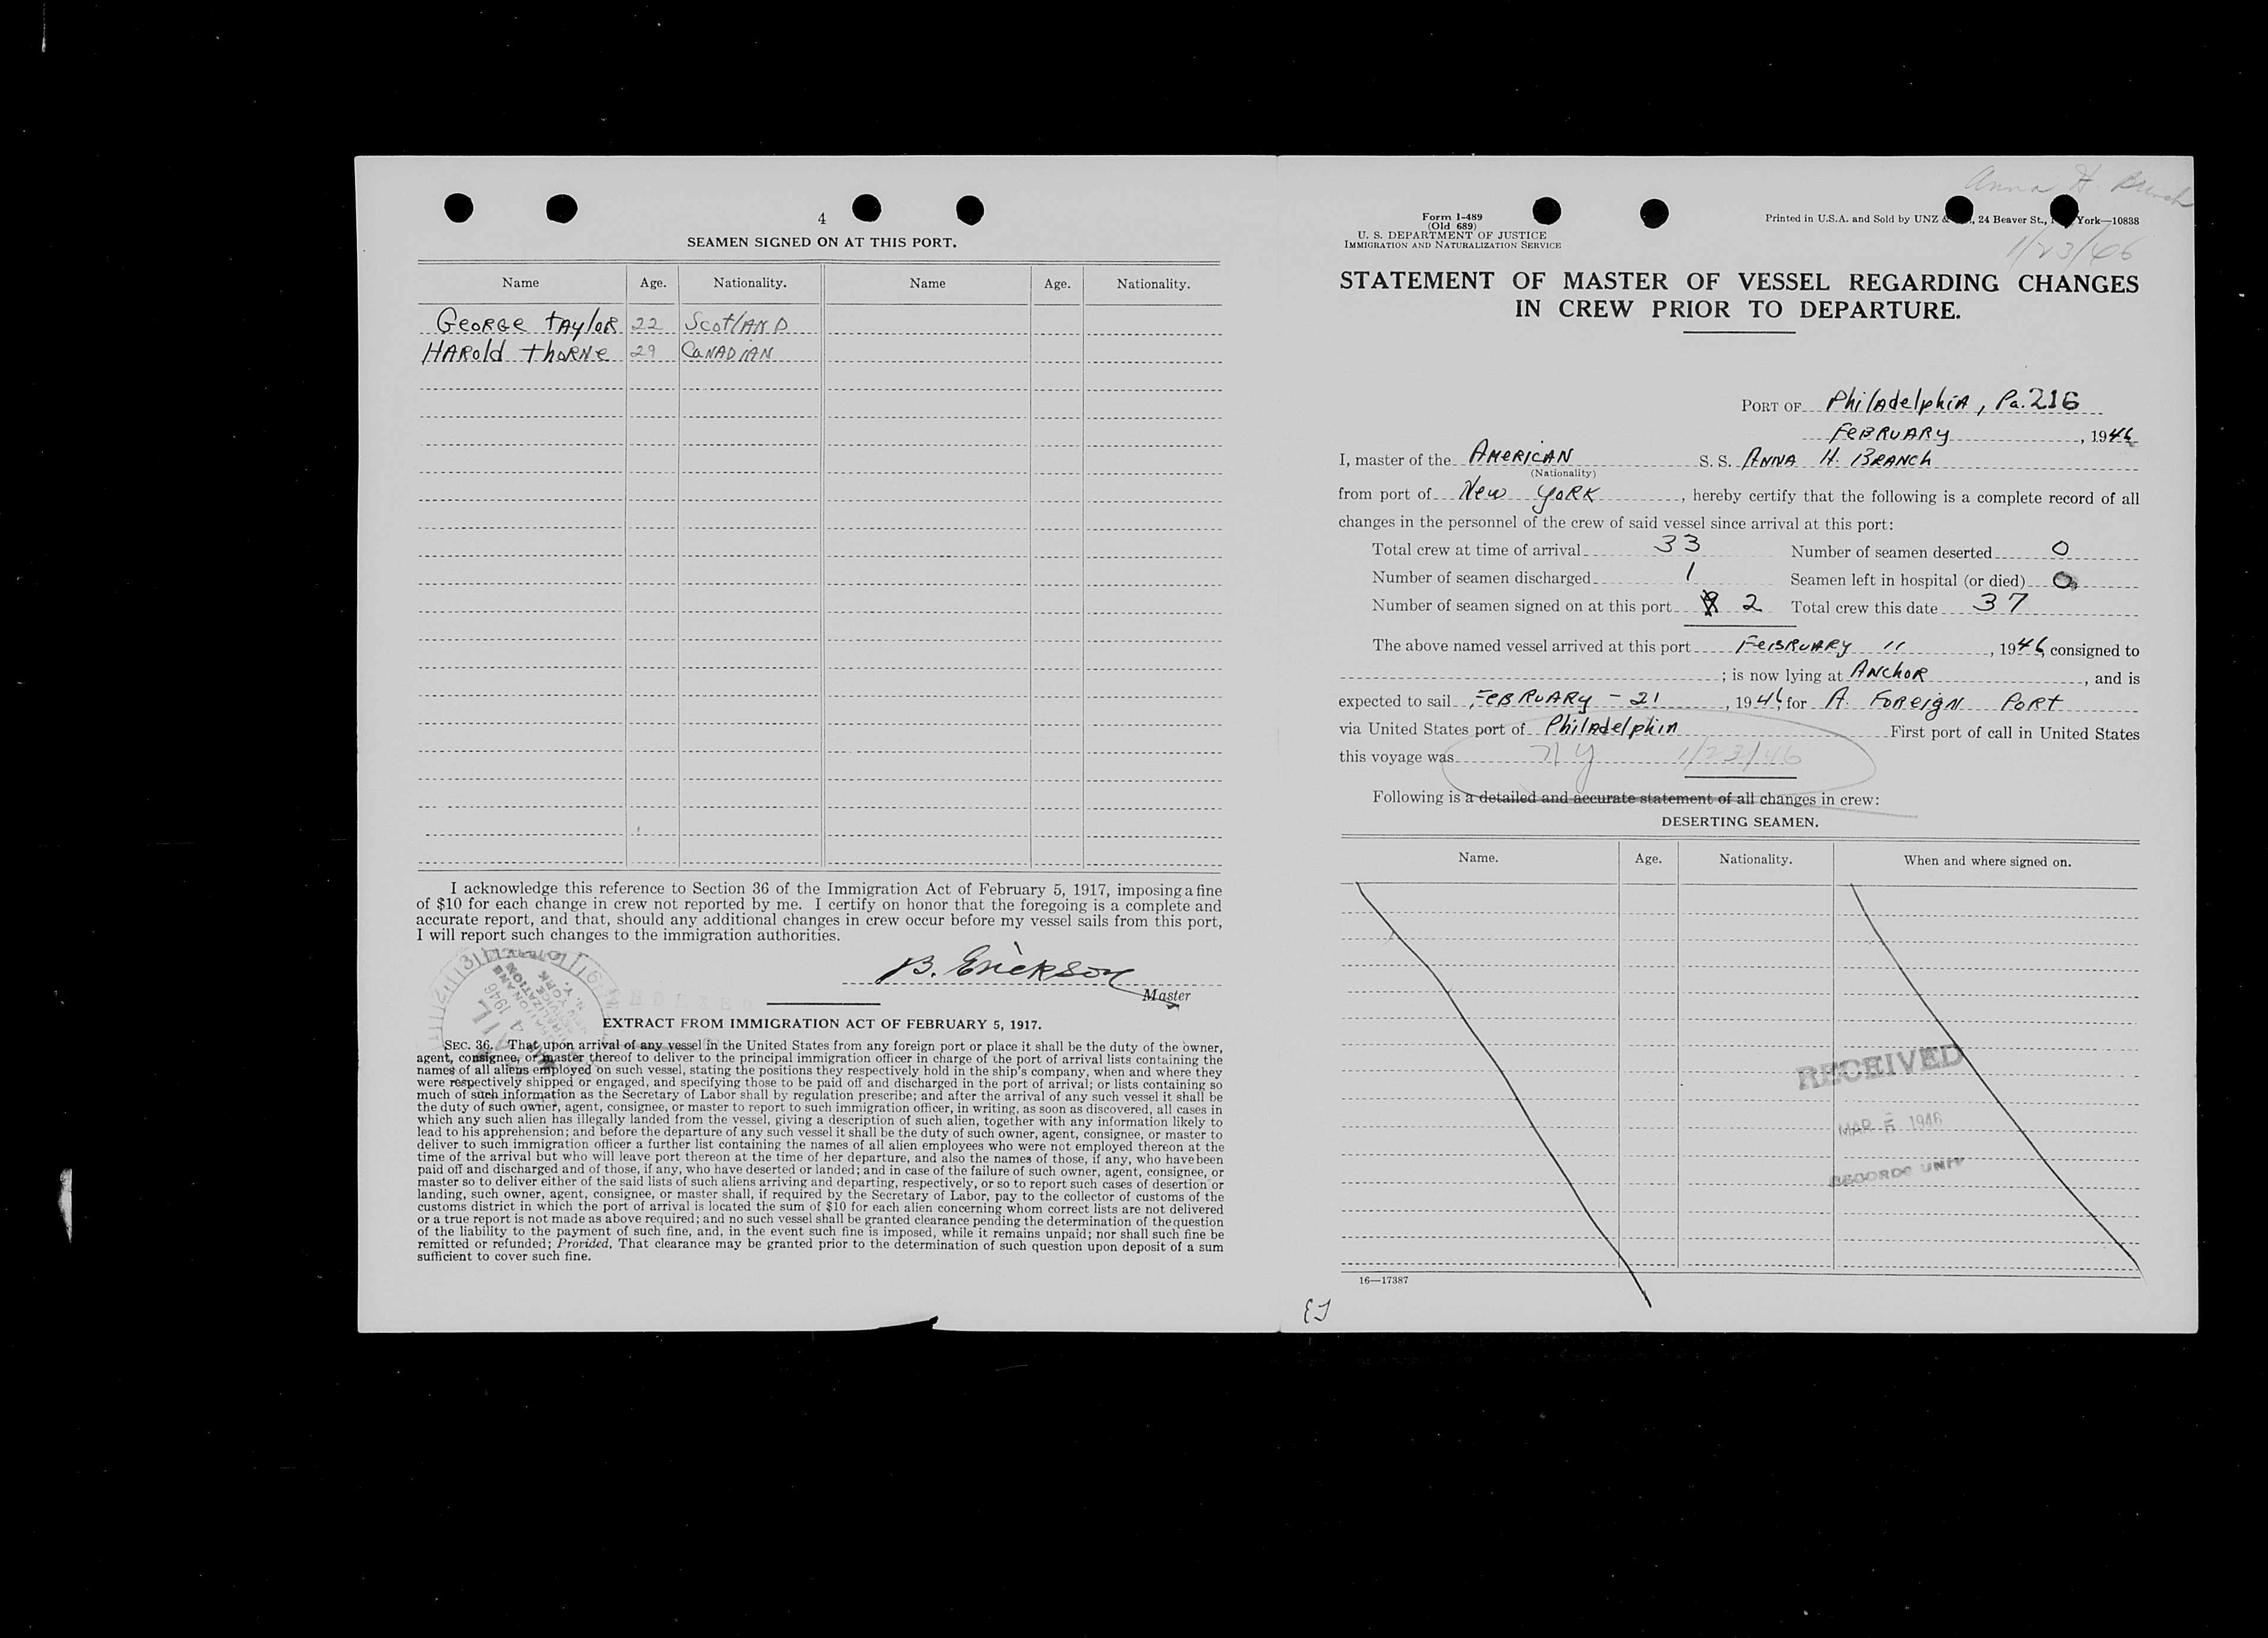 4
SEAMEN SIGNED ON AT THIS PORT.
Name Age. Nationality. Name Age. Nationality.
GeoRGe tAyloR 22 ScotlAND
HARold thoRNe 29 CaNADiAN
I acknowledge this reference to Section 36 of the Immigration Act of February 5, 1917, imposing a fine
of $10 for each change in crew not reported by me. I certify on honor that the foregoing is a complete and
accurate report, and that, should any additional changes in crew occur before my vessel sails from this port,
I will report such changes to the immigration authorities.
B. Erickson
Master
4 1946
EXTRACT FROM IMMIGRATION ACT OF FEBRUARY 5, 1917.
SEC. 36. That upon arrival of any vessel in the United States from any foreign port or place it shall be the duty of the owner,
agent, consignee, or master thereof to deliver to the principal immigration officer in charge of the port of arrival lists containing the
names of all aliens employed on such vessel, stating the positions they respectively hold in the ship's company, when and where they
were respectively shipped or engaged, and specifying those to be paid off and discharged in the port of arrival; or lists containing so
much of such information as the Secretary of Labor shall by regulation prescribe; and after the arrival of any such vessel it shall be
the duty of such owner, agent, consignee, or master to report to such immigration officer, in writing, as soon as discovered, all cases in
which any such alien has illegally landed from the vessel, giving a description of such alien, together with any information likely to
lead to his apprehension; and before the departure of any such vessel it shall be the duty of such owner, agent, consignee, or master to
deliver to such immigration officer a further list containing the names of all alien employees who were not employed thereon at the
time of the arrival but who will leave port thereon at the time of her departure, and also the names of those, if any, who have been
paid off and discharged and of those, if any, who have deserted or landed; and in case of the failure of such owner, agent, consignee, or
master so to deliver either of the said lists of such aliens arriving and departing, respectively, or so to report such cases of desertion or
landing, such owner, agent, consignee, or master shall, if required by the Secretary of Labor, pay to the collector of customs of the
customs district in which the port of arrival is located the sum of $10 for each alien concerning whom correct lists are not delivered
or a true report is not made as above required; and no such vessel shall be granted clearance pending the determination of the question
of the liability to the payment of such fine, and, in the event such fine is imposed, while it remains unpaid; nor shall such fine be
remitted or refunded; Provided, That clearance may be granted prior to the determination of such question upon deposit of a sum
sufficient to cover such fine.
Anna H. Branch
1/23/46
Form I-489
(Old 689)
U. S. DEPARTMENT OF JUSTICE
IMMIGRATION AND NATURALIZATION SERVICE
Printed in U.S.A. and Sold by UNZ & , 24 Beaver St., York—10838
STATEMENT OF MASTER OF VESSEL REGARDING CHANGES
IN CREW PRIOR TO DEPARTURE.
PORT OF PhilAdelphiA, Pa. 216
FeBRuARy , 1946
I, master of the AMeRICAN S. S. ANNA H. BRANCh
(Nationality)
from port of New yoRK , hereby certify that the following is a complete record of all
changes in the personnel of the crew of said vessel since arrival at this port:
Total crew at time of arrival 33 Number of seamen deserted 0
Number of seamen discharged 1 Seamen left in hospital (or died) 0
Number of seamen signed on at this port 2 Total crew this date 37
The above named vessel arrived at this port FeBRuARy 11 , 1946 consigned to
; is now lying at ANchoR , and is
expected to sail FeBRuARy - 21 , 1946, for A FoReigN PoRt
via United States port of PhilAdelphiA First port of call in United States
this voyage was NY 1/23/46
Following is a detailed and accurate statement of all changes in crew:
DESERTING SEAMEN.
Name. Age. Nationality. When and where signed on.
RECEIVED
MAR 5 1946
RECORDS UNIT
16—17387
EJ